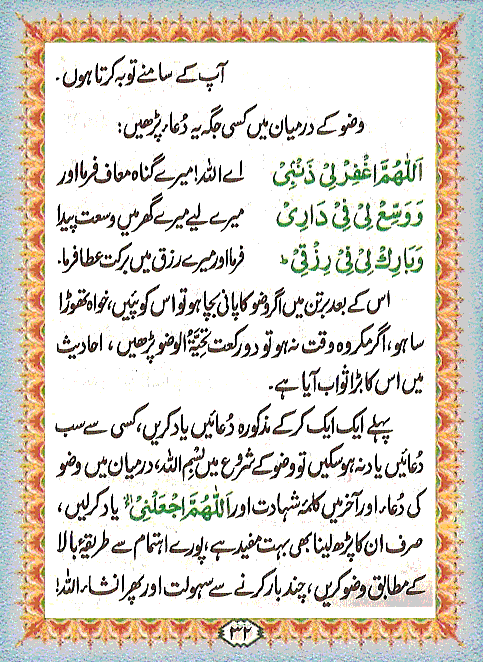 آپ کے سامنے توبہ کرتا ہوں۔
وضو کے درمیان میں کسی جگہ یہ دُعاء پڑھیں:
اَللّٰهُمَّ اغْفِرْ لِيْ ذَنْبِيْ اے اللہ! میرے گناہ معاف فرما اور
وَ وَسِّعْ لِيْ فِيْ دَارِيْ میرے لیے میرے گھر میں وسعت پیدا
وَ بَارِكْ لِيْ فِيْ رِزْقِيْ ط فرما اور میرے رزق میں برکت عطا فرما۔
اس کے بعد برتن میں اگر وضو کا پانی بچا ہو تو اس کو پئیں، خواہ تھوڑا
سا ہو، اگر مکروہ وقت نہ ہو تو دو رکعت تحیَّۃُ الوضو پڑھیں، احادیث
میں اس کا بڑا ثواب آیا ہے۔
پہلے ایک ایک کر کے مذکورہ دُعائیں یاد کریں، کسی سے سب
دُعائیں یاد نہ ہو سکیں تو وضو کے شروع میں بسْمِ اللہ، درمیان میں وضو
کی دُعاء اور آخر میں کلمۂ شہادت اور اَللّٰهُمَّ اجْعَلْنِيْ الخ یاد کر لیں،
صرف ان کا پڑھ لینا بھی بہت مفید ہے، پورے اہتمام سے طریقۂ بالا
کے مطابق وضو کریں، چند بار کرنے سے سہولت اور پھر انشاء اللہ!
۳۲